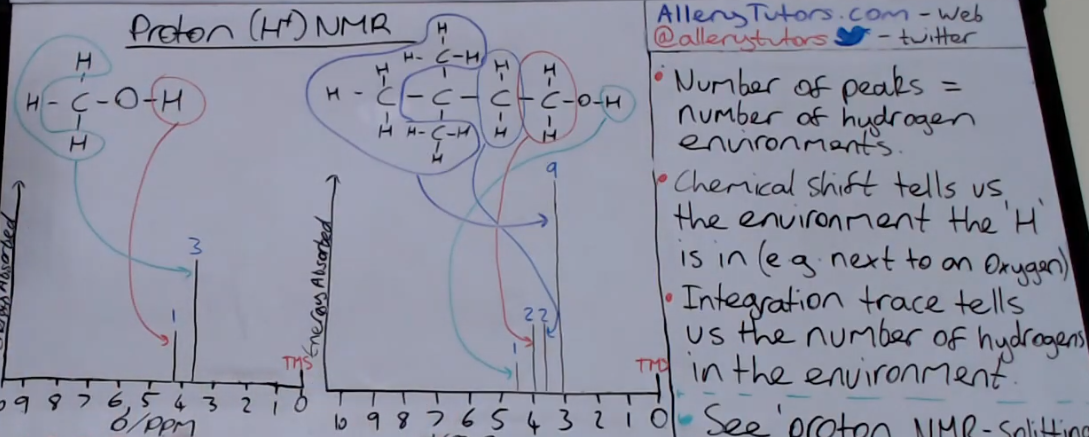 Proton (H⁺) NMR
AlleryTutors.com - Web
@allerytutors - twitter
H
H - C - O - H
H
H
H - C - H
H H H
H - C - C - C - C - O - H
H H - C - H H H
H
• Number of peaks =
number of hydrogen
environments.
• Chemical shift tells us
the environment the 'H'
is in (e.g. next to an Oxygen)
• Integration trace tells
us the number of hydrogens
in the environment.
See 'proton NMR-Splitting
3
1
TMS
9 8 7 6 5 4 3 2 1 0
δ/PPM
Energy Absorbed
9
2 2
1
TMS
10 9 8 7 6 5 4 3 2 1 0